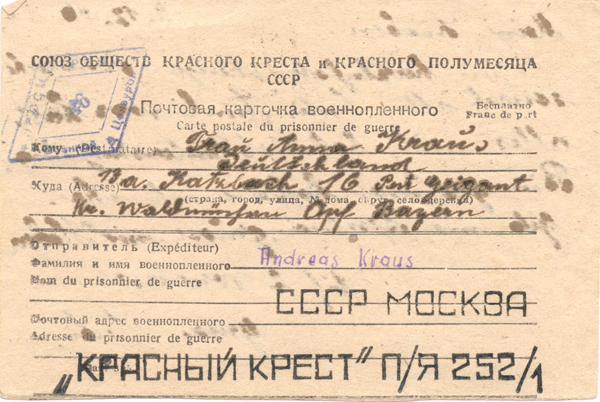 СОЮЗ ОБЩЕСТВ КРАСНОГО КРЕСТА и КРАСНОГО ПОЛУМЕСЯЦА
СССР
Почтовая карточка военнопленного
Бесплатно
Carte postale du prisonnier de guerre
Franc de port
Кому (Destinataire) Frau Anna Kraus
Deutschland
Куда (Adresse) 13a. Katzbach 16 Post Geigant
(страна, город, улица, № дома, округ, село, деревня)
Kr. Waldmünchen Opf Bayern
Отправитель (Expéditeur)
Фамилия и имя военнопленного Andreas Kraus
Nom du prisonnier de guerre
СССР МОСКВА
Почтовый адрес военнопленного
Adresse du prisonnier de guerre
„КРАСНЫЙ КРЕСТ" П/Я 252/1